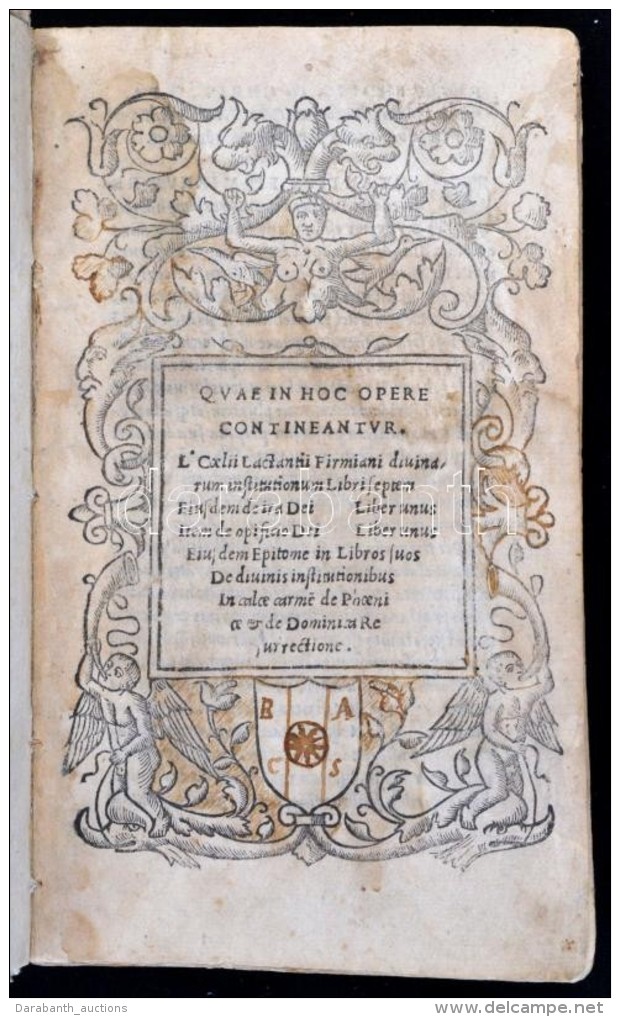 QVAE IN HOC OPERE
CONTINEANTVR.
L. Cælii Lactantii Firmiani diuina,
rum institutionum Libri septem
Eiusdem de ira Dei Liber unus
Item de opificio Dei Liber unus
Eiusdem Epitome in Libros suos
De diuinis institutionibus
In calce carmē de Phœni
ce & de Dominica Re
surrectione.
darabanth
B A
C S
Darabanth_auctions
www.delcampe.net